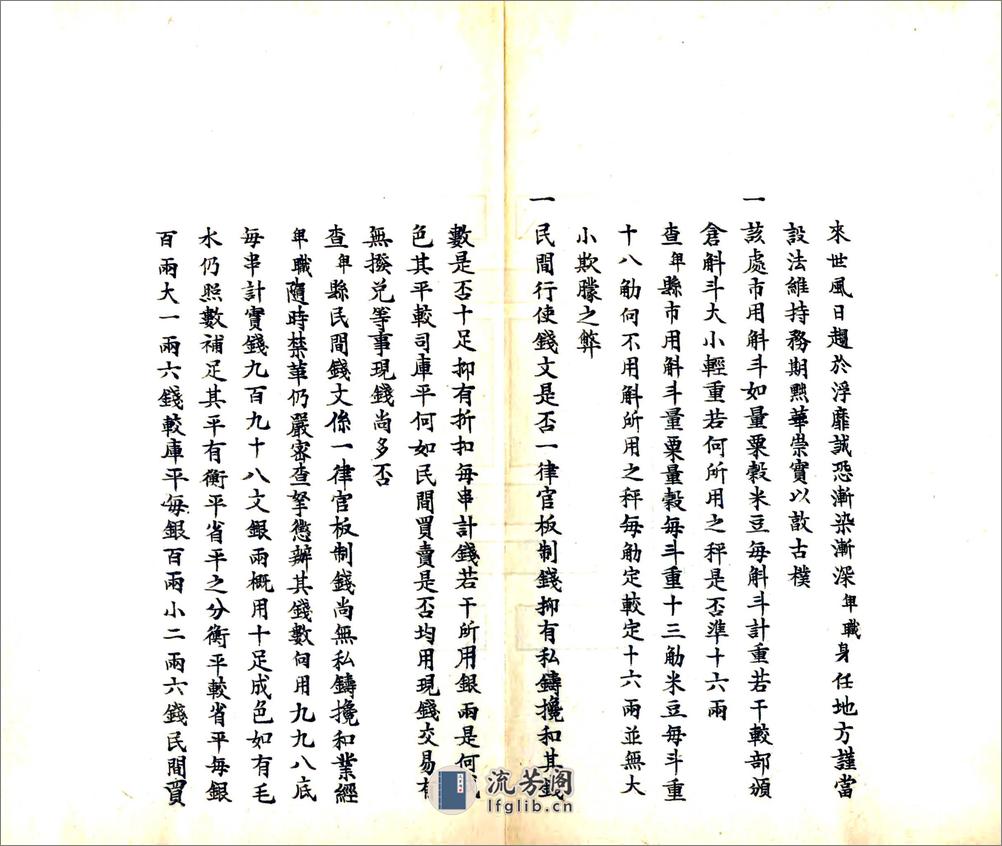 來世風日趨於浮靡誠恐漸染漸深卑職身任地方謹當
設法維持務期黜華崇實以敦古樸
一該處市用斛斗如量粟穀米豆每斛斗計重若干較部頒
倉斛斗大小輕重若何所用之秤是否準十六兩
查卑縣市用斛斗量粟量穀每斗重十三觔米豆每斗重
十八觔向不用斛所用之秤每觔定較定十六兩並無大
小欺朦之弊
一民間行使錢文是否一律官板制錢抑有私鑄攙和其錢
數是否十足抑有折扣每串計錢若干所用銀兩是何
色其平較司庫平何如民間買賣是否均用現錢交易有
無撥兌等事現錢尚多否
查卑縣民間錢文係一律官板制錢尚無私鑄攙和業經
卑職隨時禁革仍嚴密查拏懲辦其錢數向用九九八底
每串計實錢九百九十八文銀兩概用十足成色如有毛
水仍照數補足其平有衡平省平之分衡平較省平每銀
百兩大一兩六錢較庫平每銀百兩小二兩六錢民間買
流芳阁
lfglib.cn